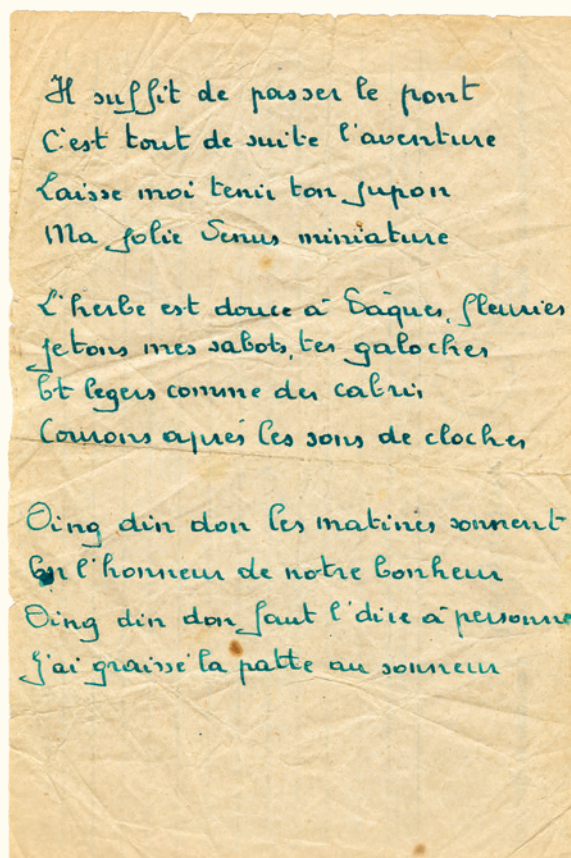 Il suffit de passer le pont
C'est tout de suite l'aventure
Laisse moi tenir ton jupon
Ma jolie Venus miniature
L'herbe est douce à Pâques, fleuries
Jetons mes sabots, tes galoches
Et legers comme des cabris
Courons aprés les sons de cloches
Ding din don les matines sonnent
En l'honneur de notre bonheur
Ding din don faut l'dire à personne
J'ai graissé la patte au sonneur